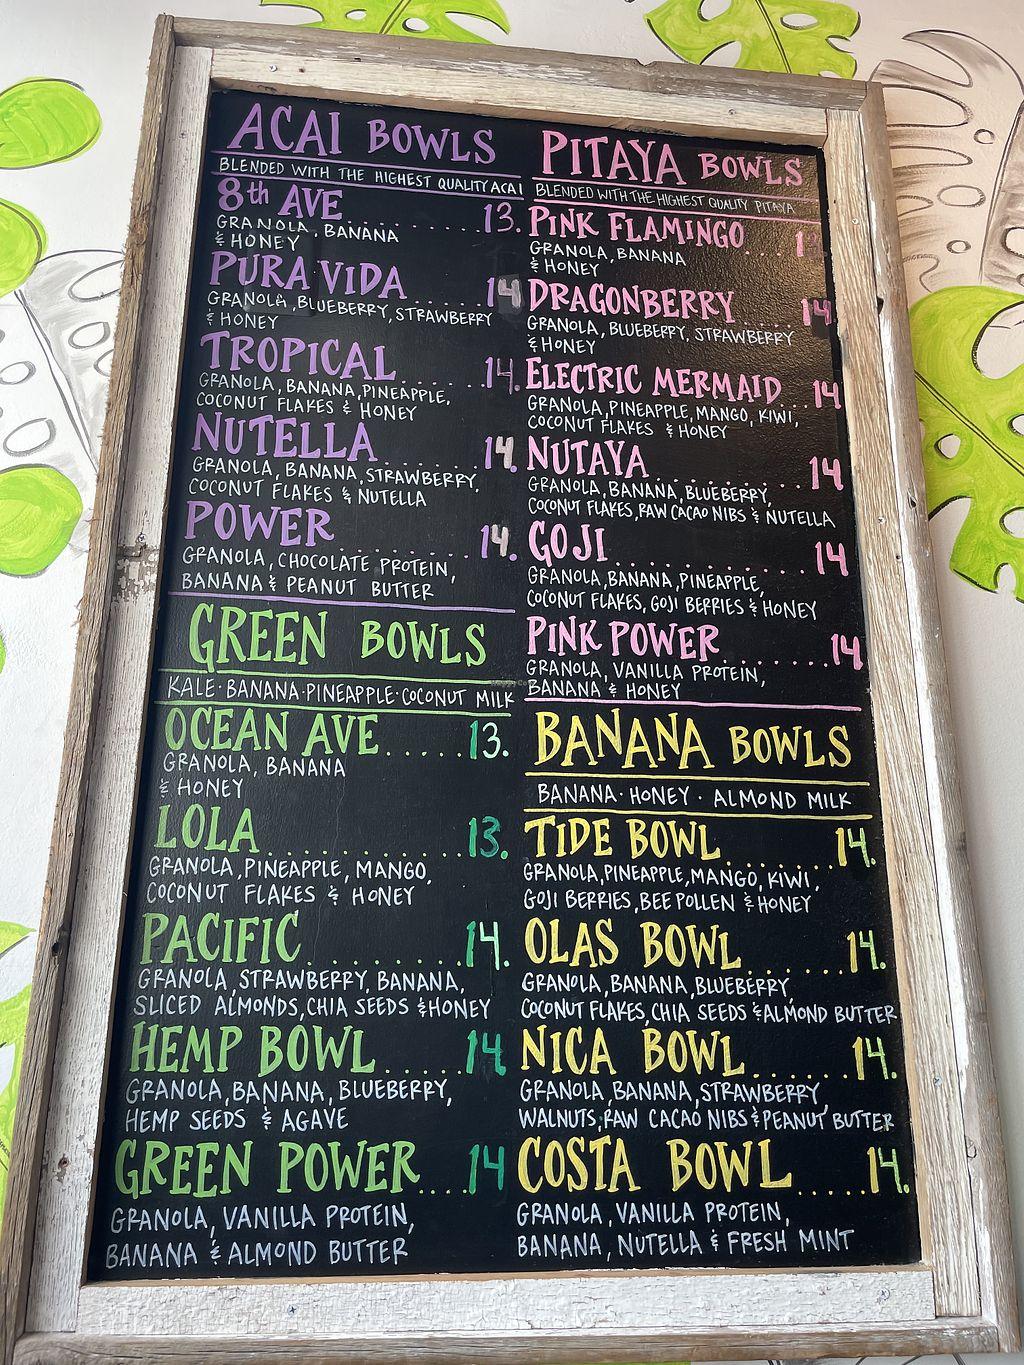 ACAI BOWLS
BLENDED WITH THE HIGHEST QUALITY ACAI
8th AVE........13.
GRANOLA, BANANA
& HONEY
PURA VIDA.....14
GRANOLA, BLUEBERRY, STRAWBERRY
& HONEY
TROPICAL......14.
GRANOLA, BANANA, PINEAPPLE,
COCONUT FLAKES & HONEY
NUTELLA.......14.
GRANOLA, BANANA, STRAWBERRY,
COCONUT FLAKES & NUTELLA
POWER.........14.
GRANOLA, CHOCOLATE PROTEIN,
BANANA & PEANUT BUTTER
GREEN BOWLS
KALE·BANANA·PINEAPPLE·COCONUT MILK
OCEAN AVE.....13.
GRANOLA, BANANA
& HONEY
LOLA..........13.
GRANOLA, PINEAPPLE, MANGO,
COCONUT FLAKES & HONEY
PACIFIC.......14.
GRANOLA, STRAWBERRY, BANANA,
SLICED ALMONDS, CHIA SEEDS & HONEY
HEMP BOWL.....14
GRANOLA, BANANA, BLUEBERRY,
HEMP SEEDS & AGAVE
GREEN POWER...14
GRANOLA, VANILLA PROTEIN,
BANANA & ALMOND BUTTER
PITAYA BOWLS
BLENDED WITH THE HIGHEST QUALITY PITAYA
PINK FLAMINGO...
GRANOLA, BANANA
& HONEY
DRAGONBERRY...14
GRANOLA, BLUEBERRY, STRAWBERRY
& HONEY
ELECTRIC MERMAID..14
GRANOLA, PINEAPPLE, MANGO, KIWI,
COCONUT FLAKES & HONEY
NUTAYA........14
GRANOLA, BANANA, BLUEBERRY,
COCONUT FLAKES, RAW CACAO NIBS & NUTELLA
GOJI..........14
GRANOLA, BANANA, PINEAPPLE,
COCONUT FLAKES, GOJI BERRIES & HONEY
PINK POWER......14
GRANOLA, VANILLA PROTEIN,
BANANA & HONEY
BANANA BOWLS
BANANA·HONEY·ALMOND MILK
TIDE BOWL......14.
GRANOLA, PINEAPPLE, MANGO, KIWI,
GOJI BERRIES, BEE POLLEN & HONEY
OLAS BOWL.....14.
GRANOLA, BANANA, BLUEBERRY,
COCONUT FLAKES, CHIA SEEDS & ALMOND BUTTER
NICA BOWL.....14.
GRANOLA, BANANA, STRAWBERRY,
WALNUTS, RAW CACAO NIBS & PEANUT BUTTER
COSTA BOWL....14.
GRANOLA, VANILLA PROTEIN,
BANANA, NUTELLA & FRESH MINT